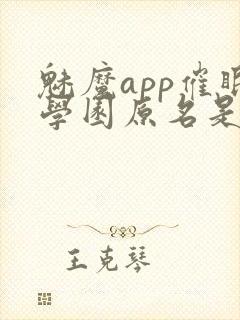 魅魔app催眠
學園原名是
王克琴